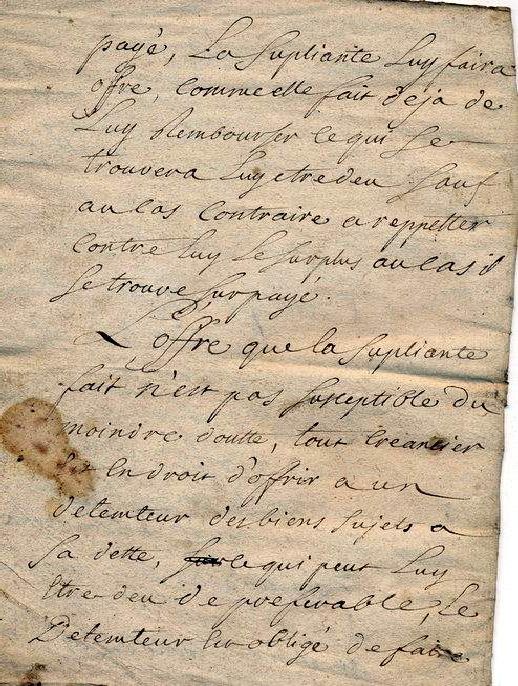 payé, La supliante Luy faira
offre, comme elle fait deja de
Luy Rembourser ce qui se
trouvera Luy etre deu sauf
au cas contraire a reppetter
contre Luy le surplus au cas il
se trouve surpayé.
L'offre que la supliante
fait n'est pas susceptible du
moindre doutte, tout creancier
est en droit d'offrir a un
detemteur des biens sujets a
sa dette, ce qui peut Luy
etre deu de preferable, le
Detemteur est obligé de faire